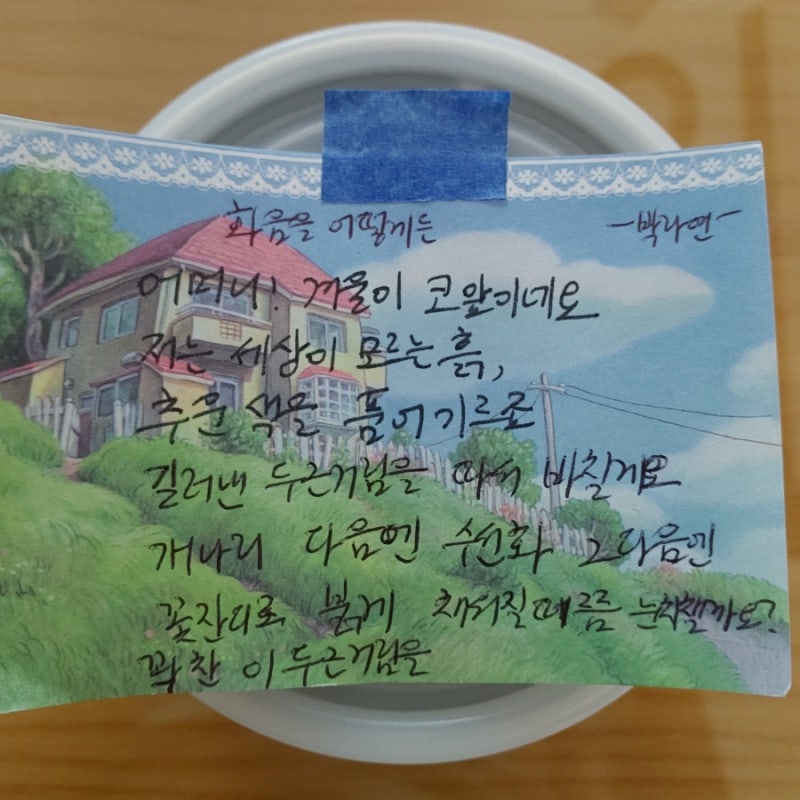 화음을 어떻게든 -박라연-
어머니! 겨울이 코앞이네요
저는 세상이 모르는 흙,
추운 색을 품어기르죠
길러낸 두근거림을 따서 바칠게요
개나리 다음엔 수선화 그다음엔
꽃잔디로 붉게 채워질때쯤 눈치챌까요?
꽉찬 이 두근거림을